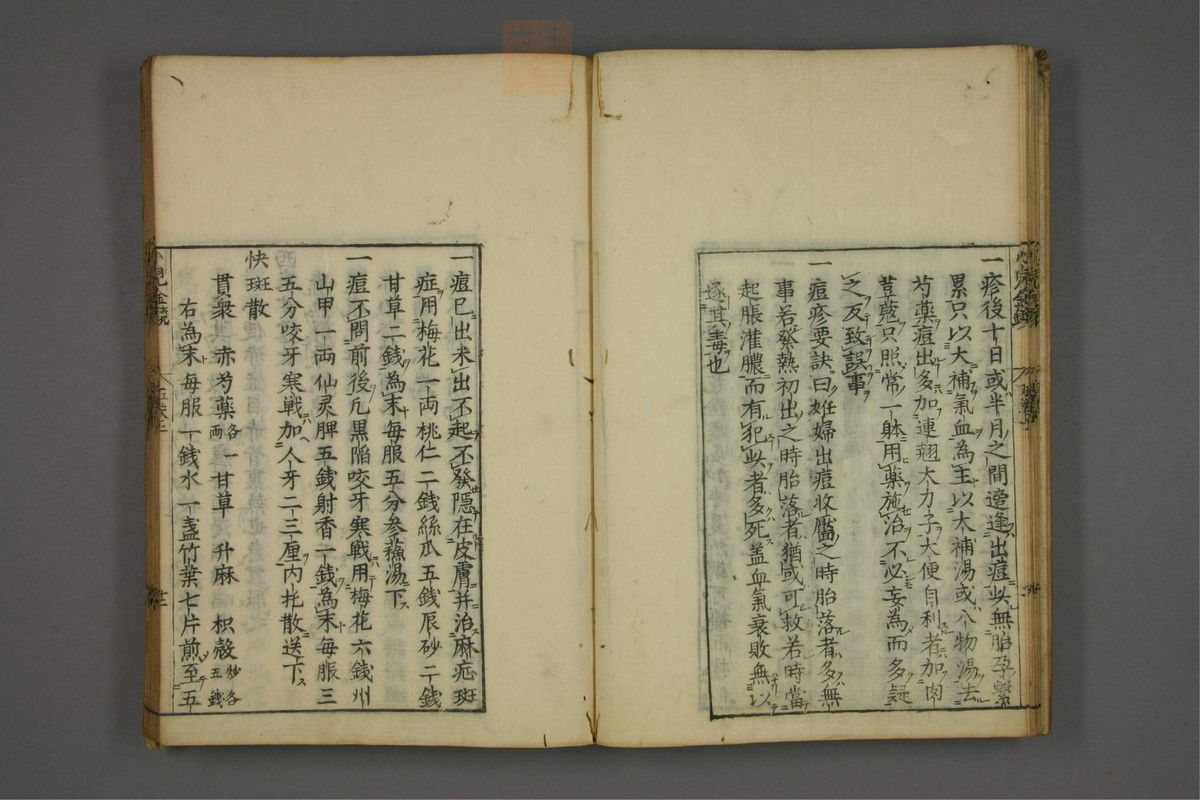 一疹後十日或半月之間遶逢出痘以無胎孕繫
累只以大補氣血為主以大補湯或八物湯去
芍藥痘出多加連翹大力子大便自利者加肉
荳蔻只照常一躰用藥施治不必妄為而多疑
之反致誤事
一痘疹要訣曰妊婦出痘收靨之時胎落者多無
事若發熱初出之時胎落者猶或可救若時當
起脹灌膿而有犯此者多死蓋血氣衰敗無以
逐其毒也
一痘已出未出不起不發隱在皮膚并治麻疕斑
症用梅花一両桃仁二錢絲瓜五錢辰砂二錢
甘草二錢為末每服五分參蘓湯下
一痘不問前後凡黒陥咬牙寒戰用梅花六錢州
山甲一両仙灵脾五錢射香一錢為末每服三
五分咬牙寒戰加人牙二三厘内托散送下
快斑散
貫衆 赤芍藥各一両 甘草 升麻 枳殼炒各五錢
右為末每服一錢水一盞竹葉七片煎至五
小兒金鏡